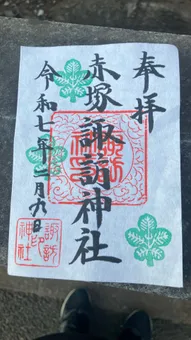 奉拝
赤塚諏訪神社
令和七年二月九日
諏訪
神社